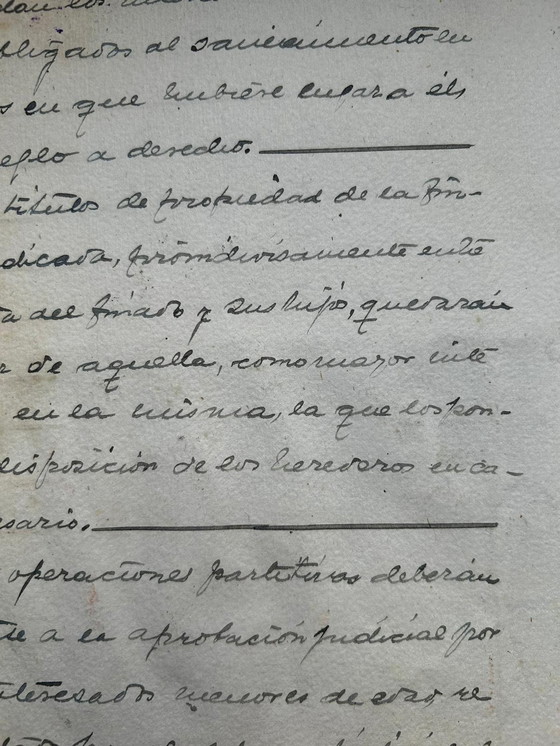 obligados al saneamiento en
s en que hubiere lugar a él,
eglo a derecho.
títulos de propiedad de la fin-
dicada, proindivisamente ente
a del finado y sus hijos, quedarán
r de aquella, como mayor inte
en la misma, la que los pon-
disposición de los herederos en ca-
esario.
operaciones partitivas deberán
te a la aprobación judicial por
interesados menores de edad, re